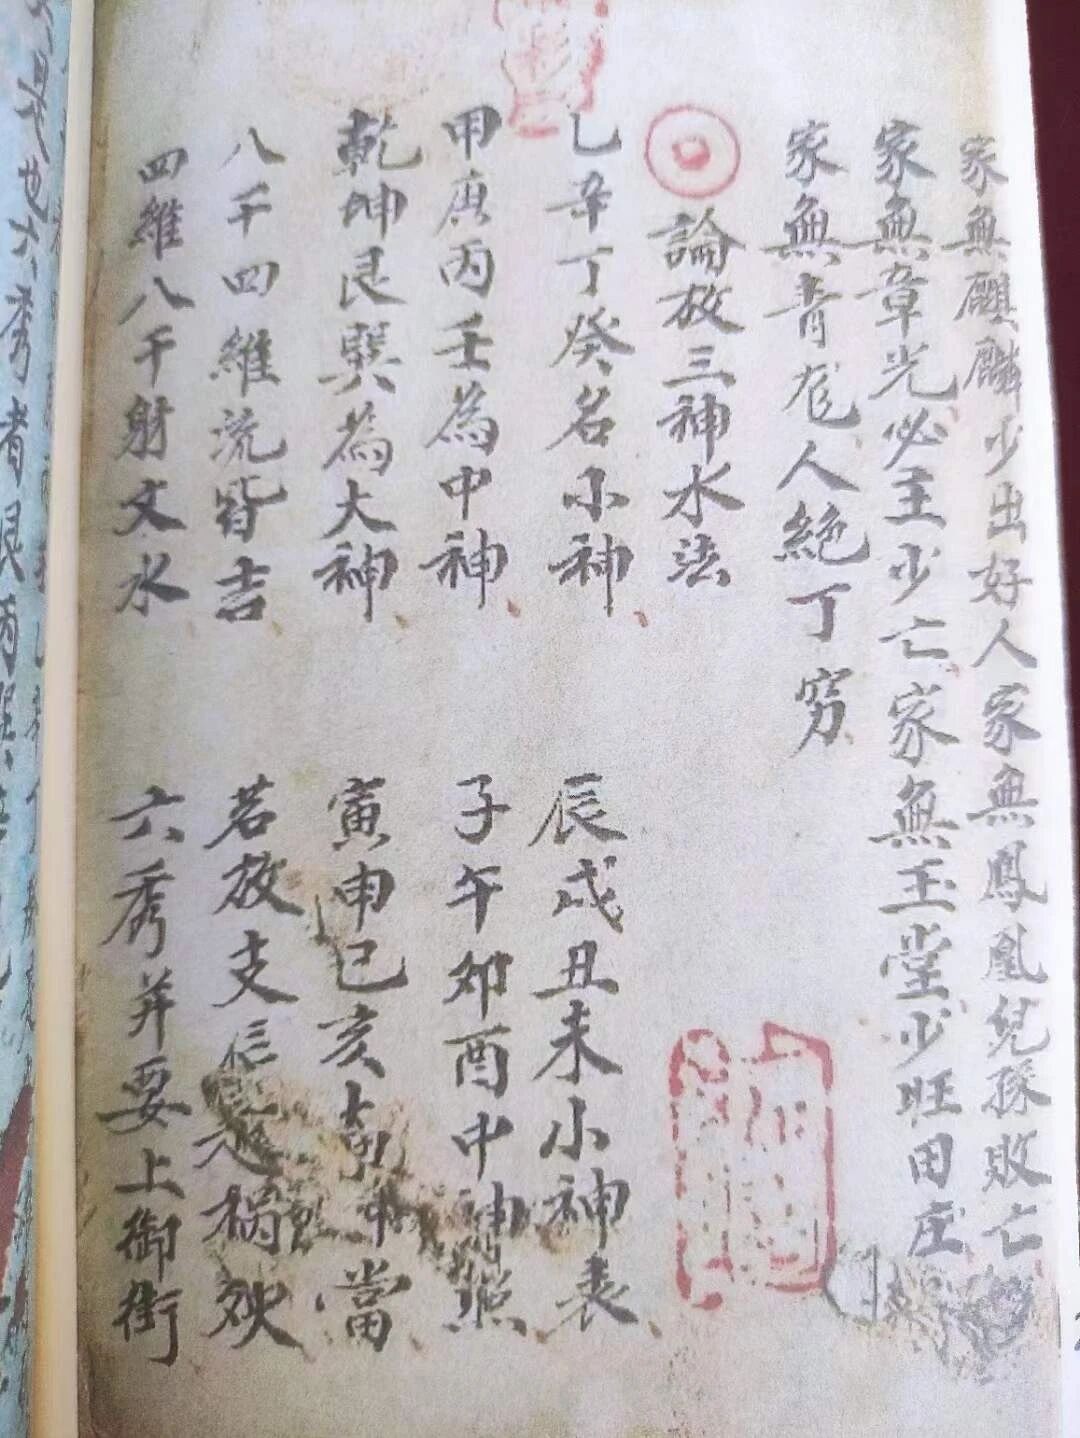 家無麒麟少出好人家無鳳凰兒孫敗亡
家無章光必主少亡家無玉堂少旺田庄
家無青龙人絶丁穷
論放三神水法
乙辛丁癸名小神 辰戌丑未小神表
甲庚丙壬為中神 子午卯酉中神照
乾坤艮巽為大神 寅申巳亥大 當
八干四維流皆吉 若放支 禍殃
四維八干射文水 六秀并要上御街